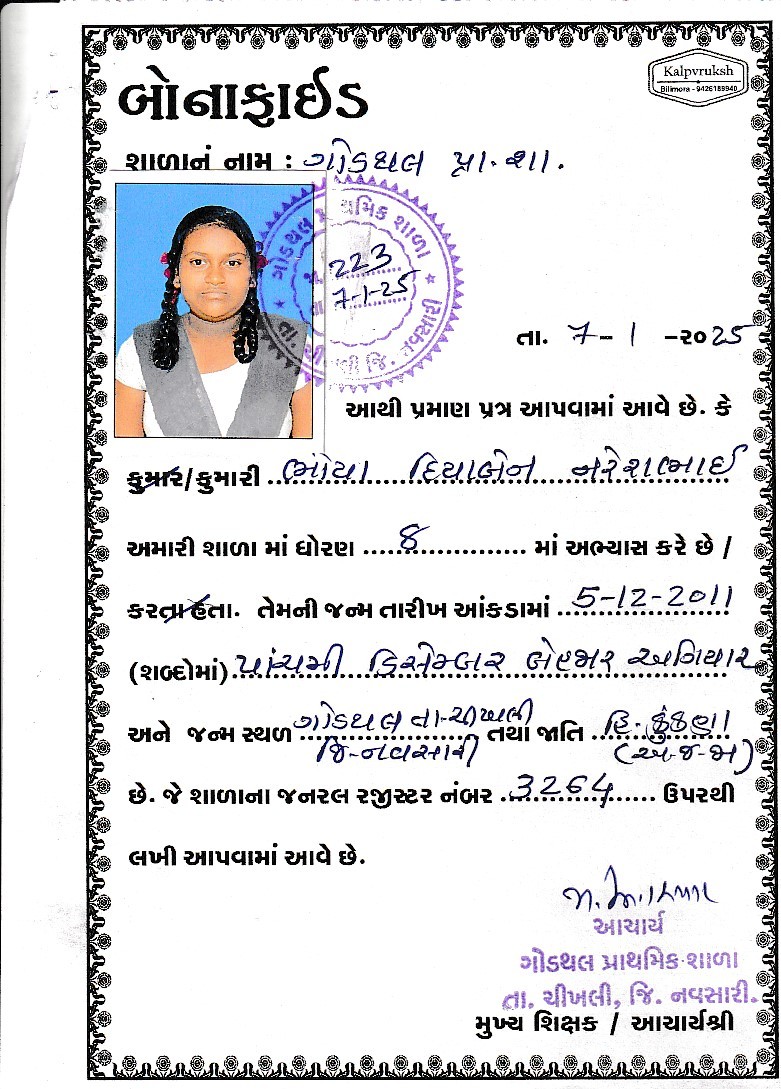 Kalpvruksh
Bilimora - 9426189940
બોનાફાઈડ
શાળાનં નામ : ગોડથલ પ્રા. શા.
ગોડથલ પ્રાથમિક શાળા
જા. 223
તા 7-1-25
તા. ચીખલી જિ. નવસારી
તા. 7-1-૨૦25
આથી પ્રમાણ પત્ર આપવામાં આવે છે. કે
કુમાર/કુમારી ભોયા દિયાબેન નરેશભાઈ
અમારી શાળા માં ધોરણ 8 માં અભ્યાસ કરે છે /
કરતા હતા. તેમની જન્મ તારીખ આંકડામાં 5-12-2011
(શબ્દોમાં) પાંચમી ડિસેમ્બર બેહજાર અગિયાર
અને જન્મ સ્થળ ગોડથલ તા-ચીખલી તથા જાતિ હિ. કુંકણા
જિ-નવસારી (અ.જ.જા)
છે. જે શાળાના જનરલ રજીસ્ટર નંબર 3264 ઉપરથી
લખી આપવામાં આવે છે.
આચાર્ય
ગોડથલ પ્રાથમિક શાળા
તા. ચીખલી, જિ. નવસારી.
મુખ્ય શિક્ષક / આચાર્યશ્રી